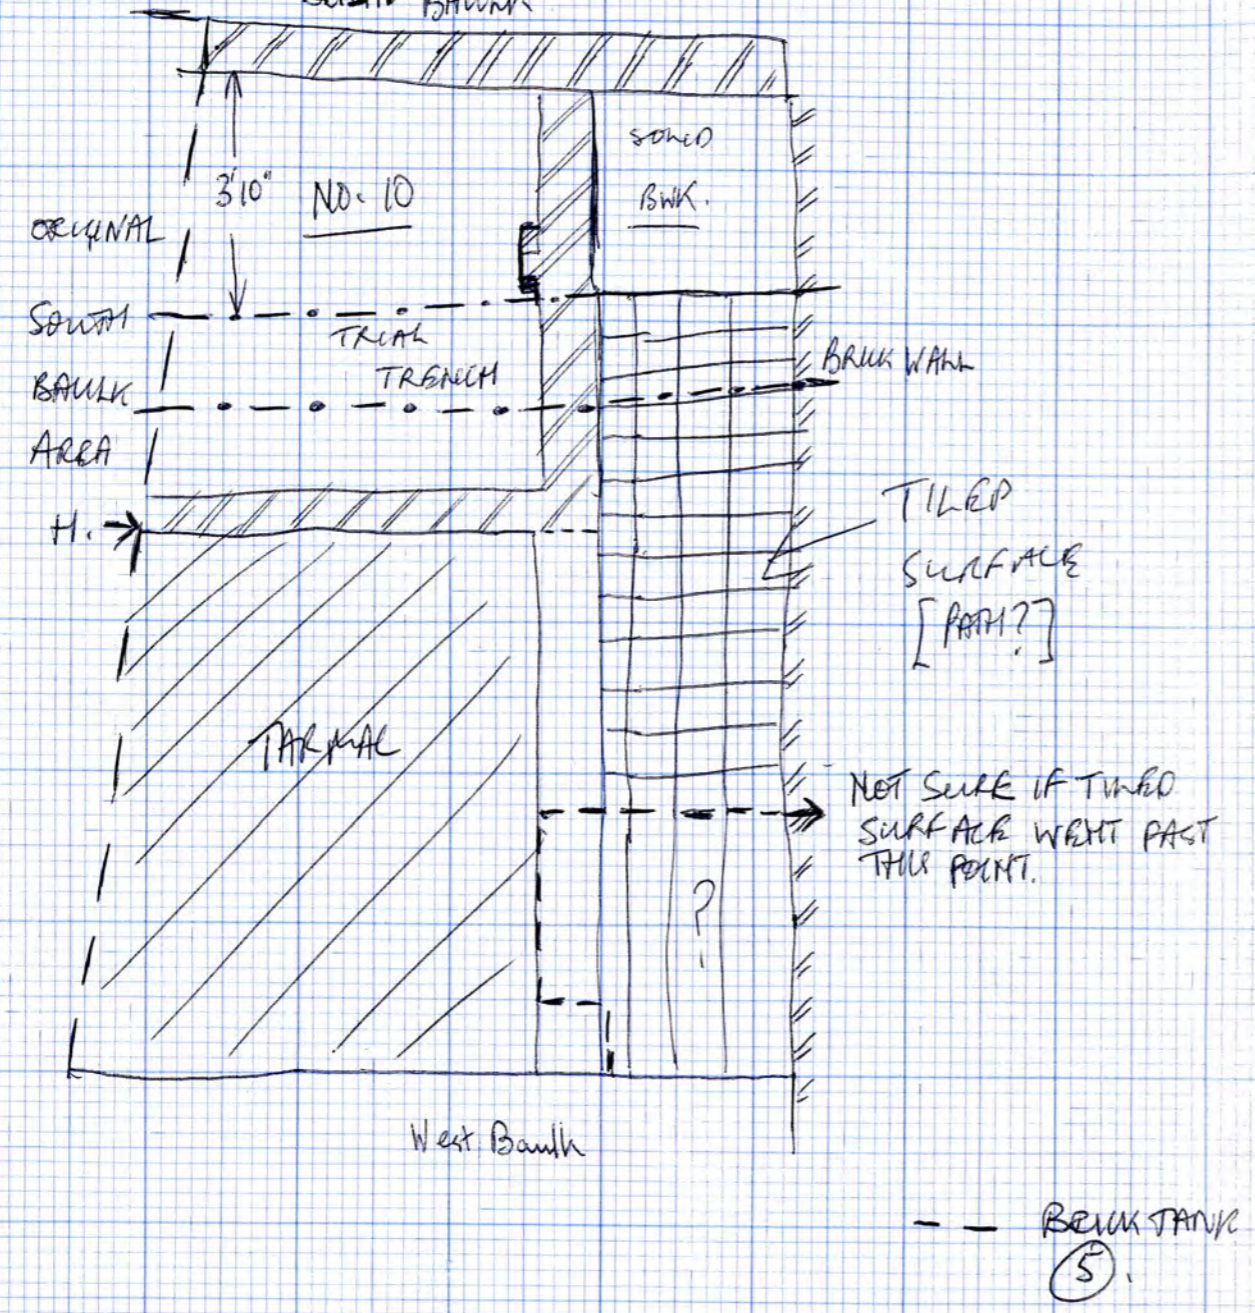 BAULK
SOLID
BWK.
3'10"
NO. 10
ORIGINAL
SOUTH
BAULK
AREA
TRIAL
TRENCH
BRICK WALL
H.
TILED
SURFACE
[PATH?]
TARMAC
NOT SURE IF TILED
SURFACE WENT PAST
THIS POINT.
?
West Baulk
BRICK TANK
5.